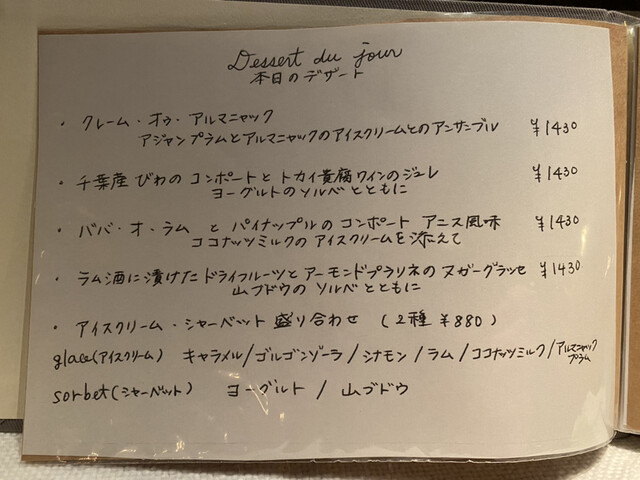 Dessert du jour
本日のデザート
・ クレーム・オゥ・アルマニャック
アジャンプラムとアルマニャックのアイスクリームとのアンサンブル ¥1430
・ 千葉産 びわの コンポートと トカイ貴腐ワインのジュレ ¥1430
ヨーグルトのソルベとともに
・ ババ・オ・ラム と パイナップルのコンポート アニス風味 ¥1430
ココナッツミルクのアイスクリームを添えて
・ ラム酒に漬けたドライフルーツとアーモンドプラリネの ヌガーグラッセ ¥1430
山ブドウの ソルベとともに
・ アイスクリーム・シャーベット 盛り合わせ (2種 ¥880)
glace(アイスクリーム) キャラメル/ゴルゴンゾーラ/シナモン/ラム/ココナッツミルク/アルマニャックプラム
sorbet(シャーベット) ヨーグルト / 山ブドウ